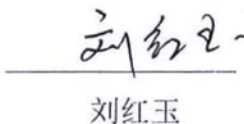 刘红玉
刘红玉